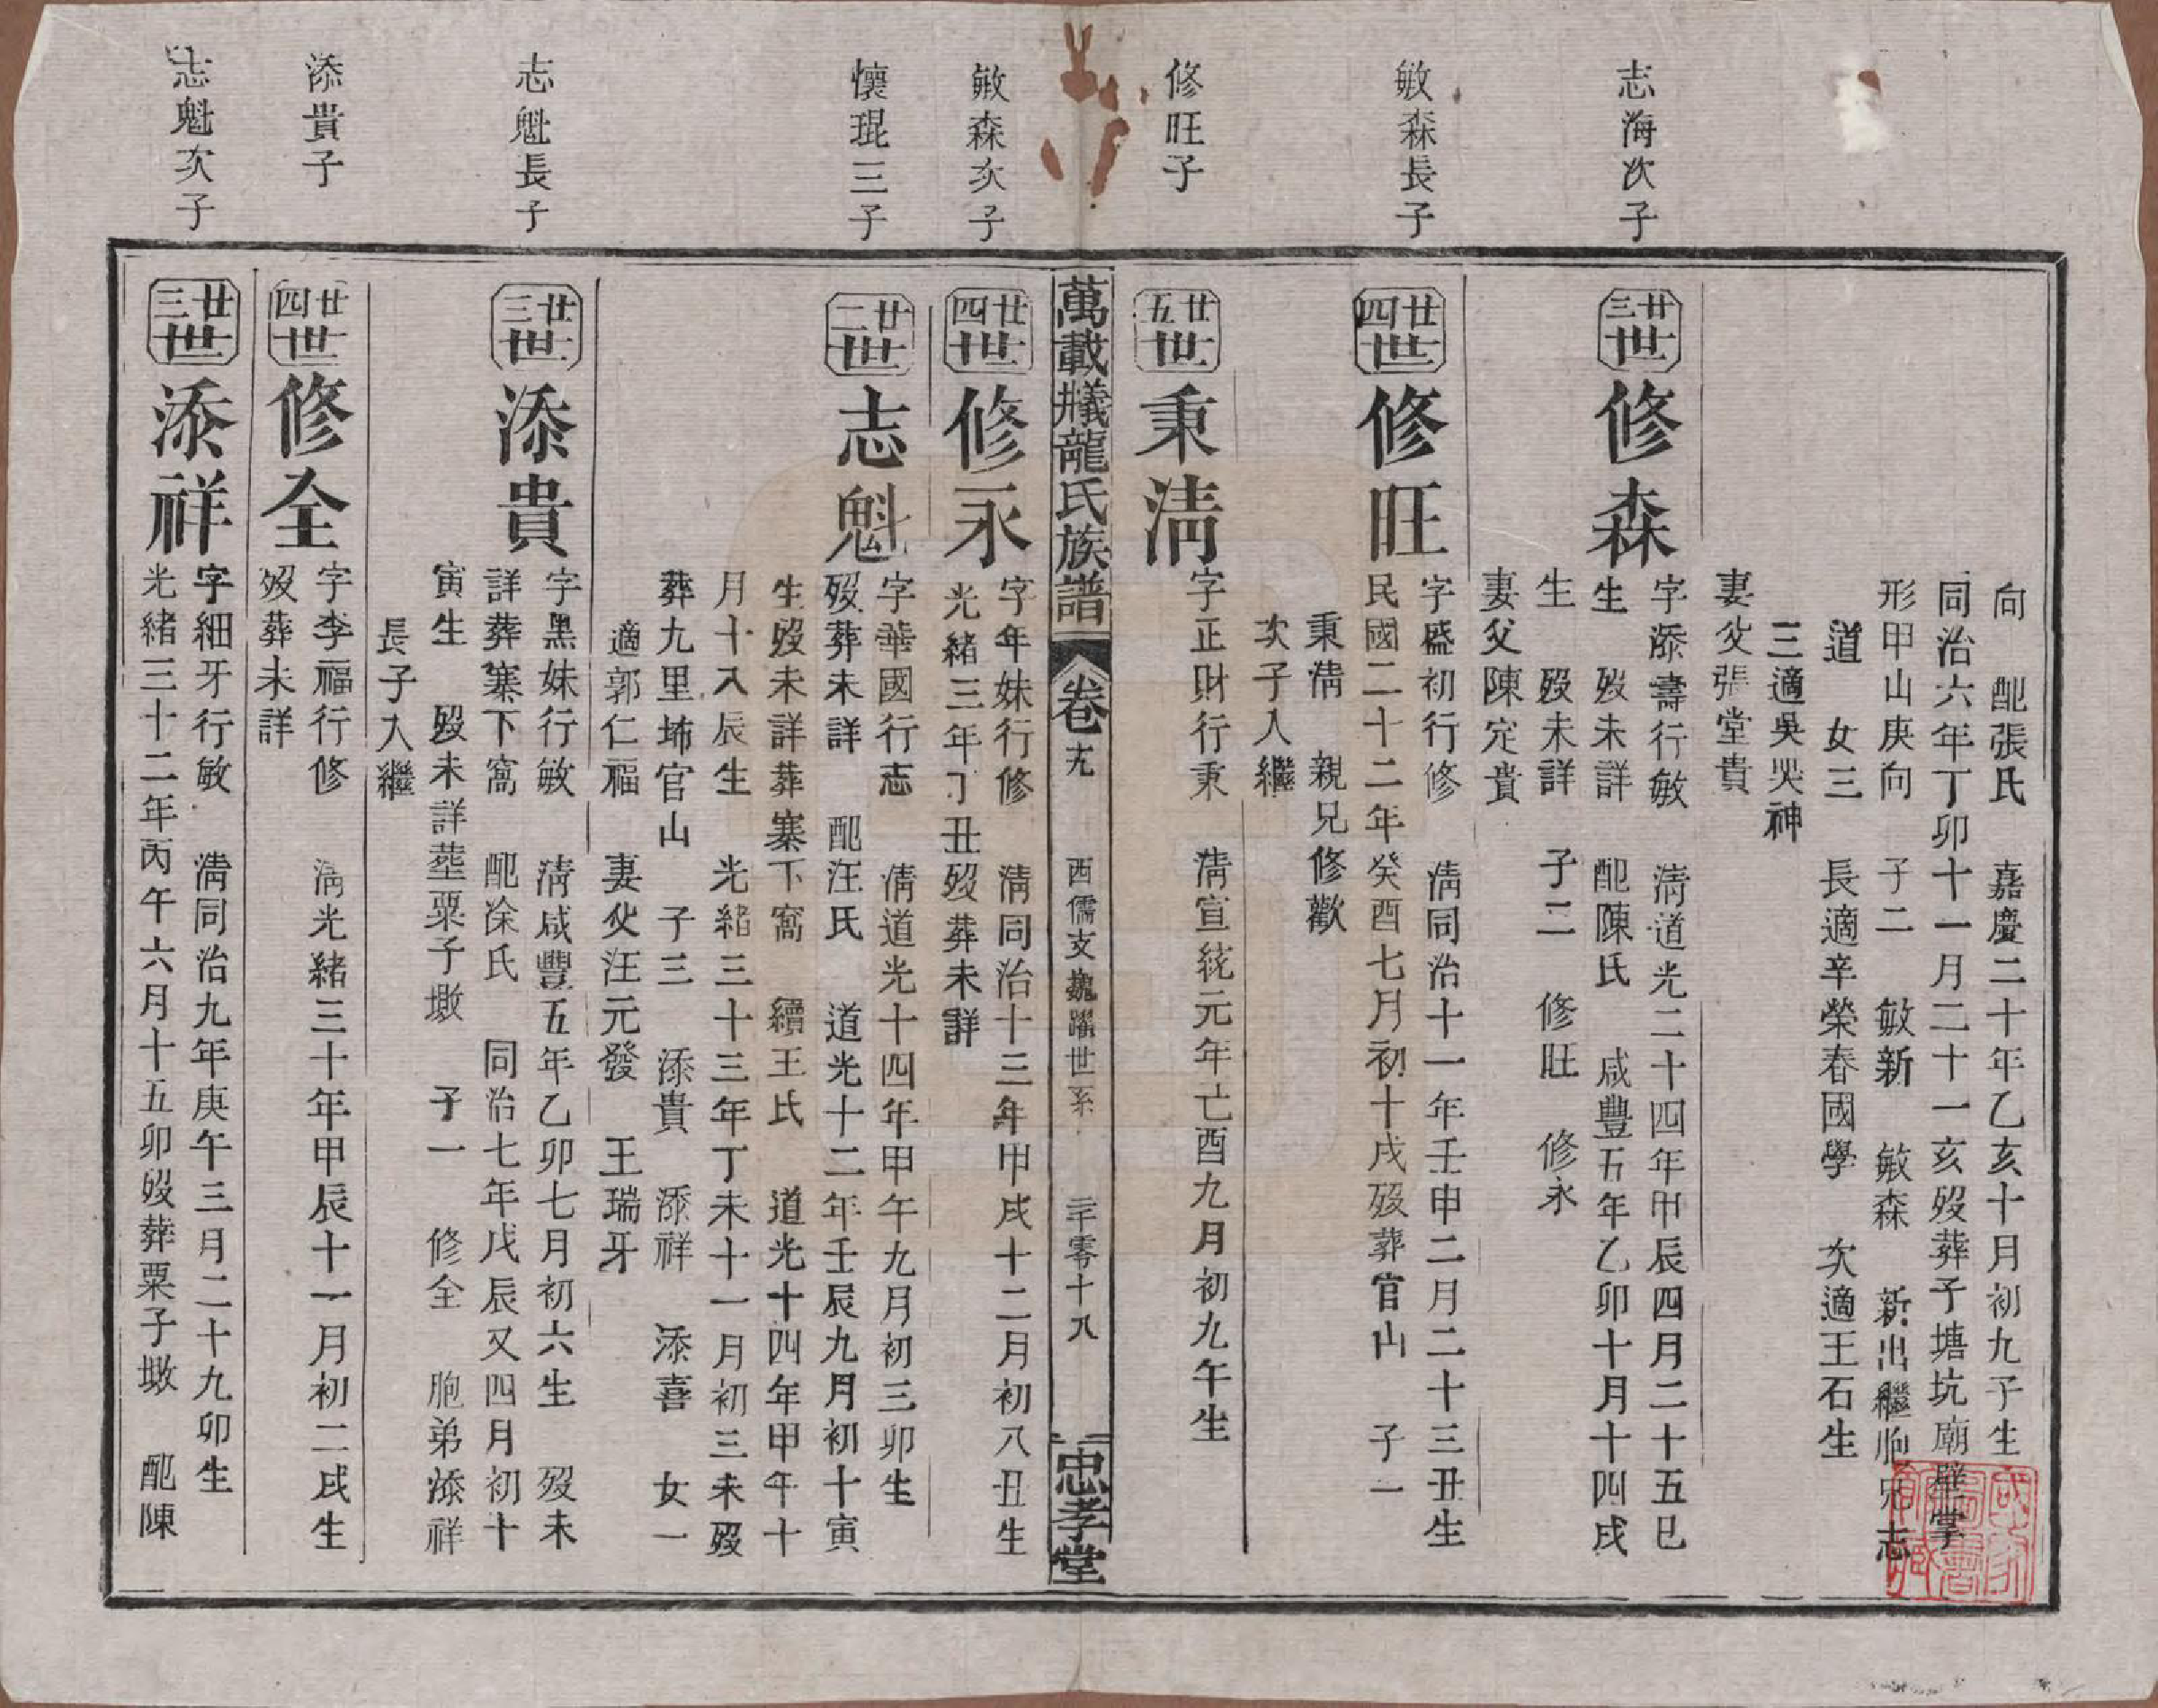 向　配張氏　嘉慶二十年乙亥十月初九子生
同治六年丁卯十一月二十一亥歿葬子塘坑廟壁掌
形甲山庚向　子二　敏新　敏森　新出繼胞兄志
道　女三　長適辛榮春國學　次適王石生
三適吳哭神
妻父張堂貴
志海次子
廿三世
修森
字添壽行敏　清道光二十四年甲辰四月二十五巳
生　歿未詳　配陳氏　咸豐五年乙卯十月十四戌
生　歿未詳　子二　修旺　修永
妻父陳定貴
敏森長子
廿四世
修旺
字盛初行修　清同治十一年壬申二月二十三丑生
民國二十二年癸酉七月初十戌歿葬官山　子一
秉清　親兄修歡
次子入繼
修旺子
廿五世
秉清
字正財行秉　清宣統元年己酉九月初九午生
萬載㰕龍氏族譜
卷十九
西儒支巍躍世系
二千零十八
忠孝堂
敏森次子
廿四世
修永
字年妹行修　清同治十三年甲戌十二月初八丑生
光緒三年丁丑歿葬未詳
懷琨三子
廿二世
志魁
字華國行志　清道光十四年甲午九月初三卯生
歿葬未詳　配汪氏　道光十二年壬辰九月初十寅
生歿未詳葬寨下窩　續王氏　道光十四年甲午十
月十八辰生　光緒三十三年丁未十一月初三未歿
葬九里埠官山　子三　添貴　添祥　添喜　女一
適郭仁福　妻父汪元發　王瑞牙
志魁長子
廿三世
添貴
字黑妹行敏　清咸豐五年乙卯七月初六生　歿未
詳葬寨下窩　配涂氏　同治七年戊辰又四月初十
寅生　歿未詳葬栗子墩　子一　修全　胞弟添祥
長子入繼
添貴子
廿四世
修全
字李福行修　清光緒三十年甲辰十一月初二戌生
歿葬未詳
志魁次子
廿三世
添祥
字細牙行敏　清同治九年庚午三月二十九卯生
光緒三十二年丙午六月十五卯歿葬栗子墩　配陳